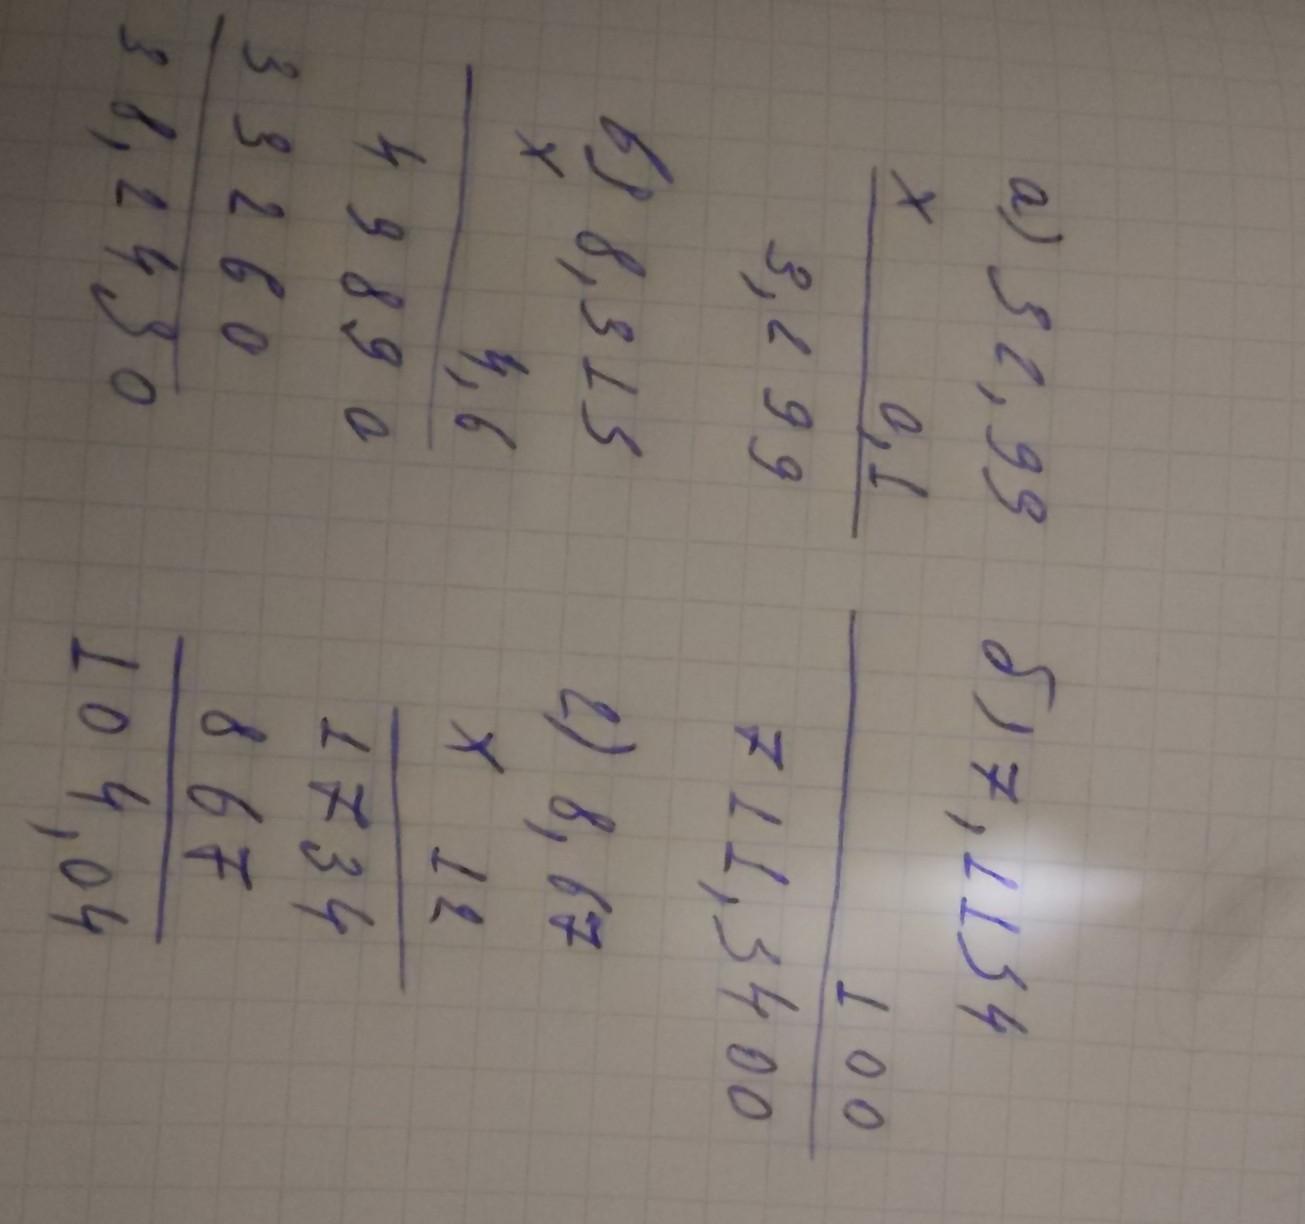 а) 32,99
б) 7,1154
×
0,1
100
3,299
711,5400
в) 8,315
г) 8,67
× 4,6
× 12
49890
1734
33260
867
38,2490
104,04